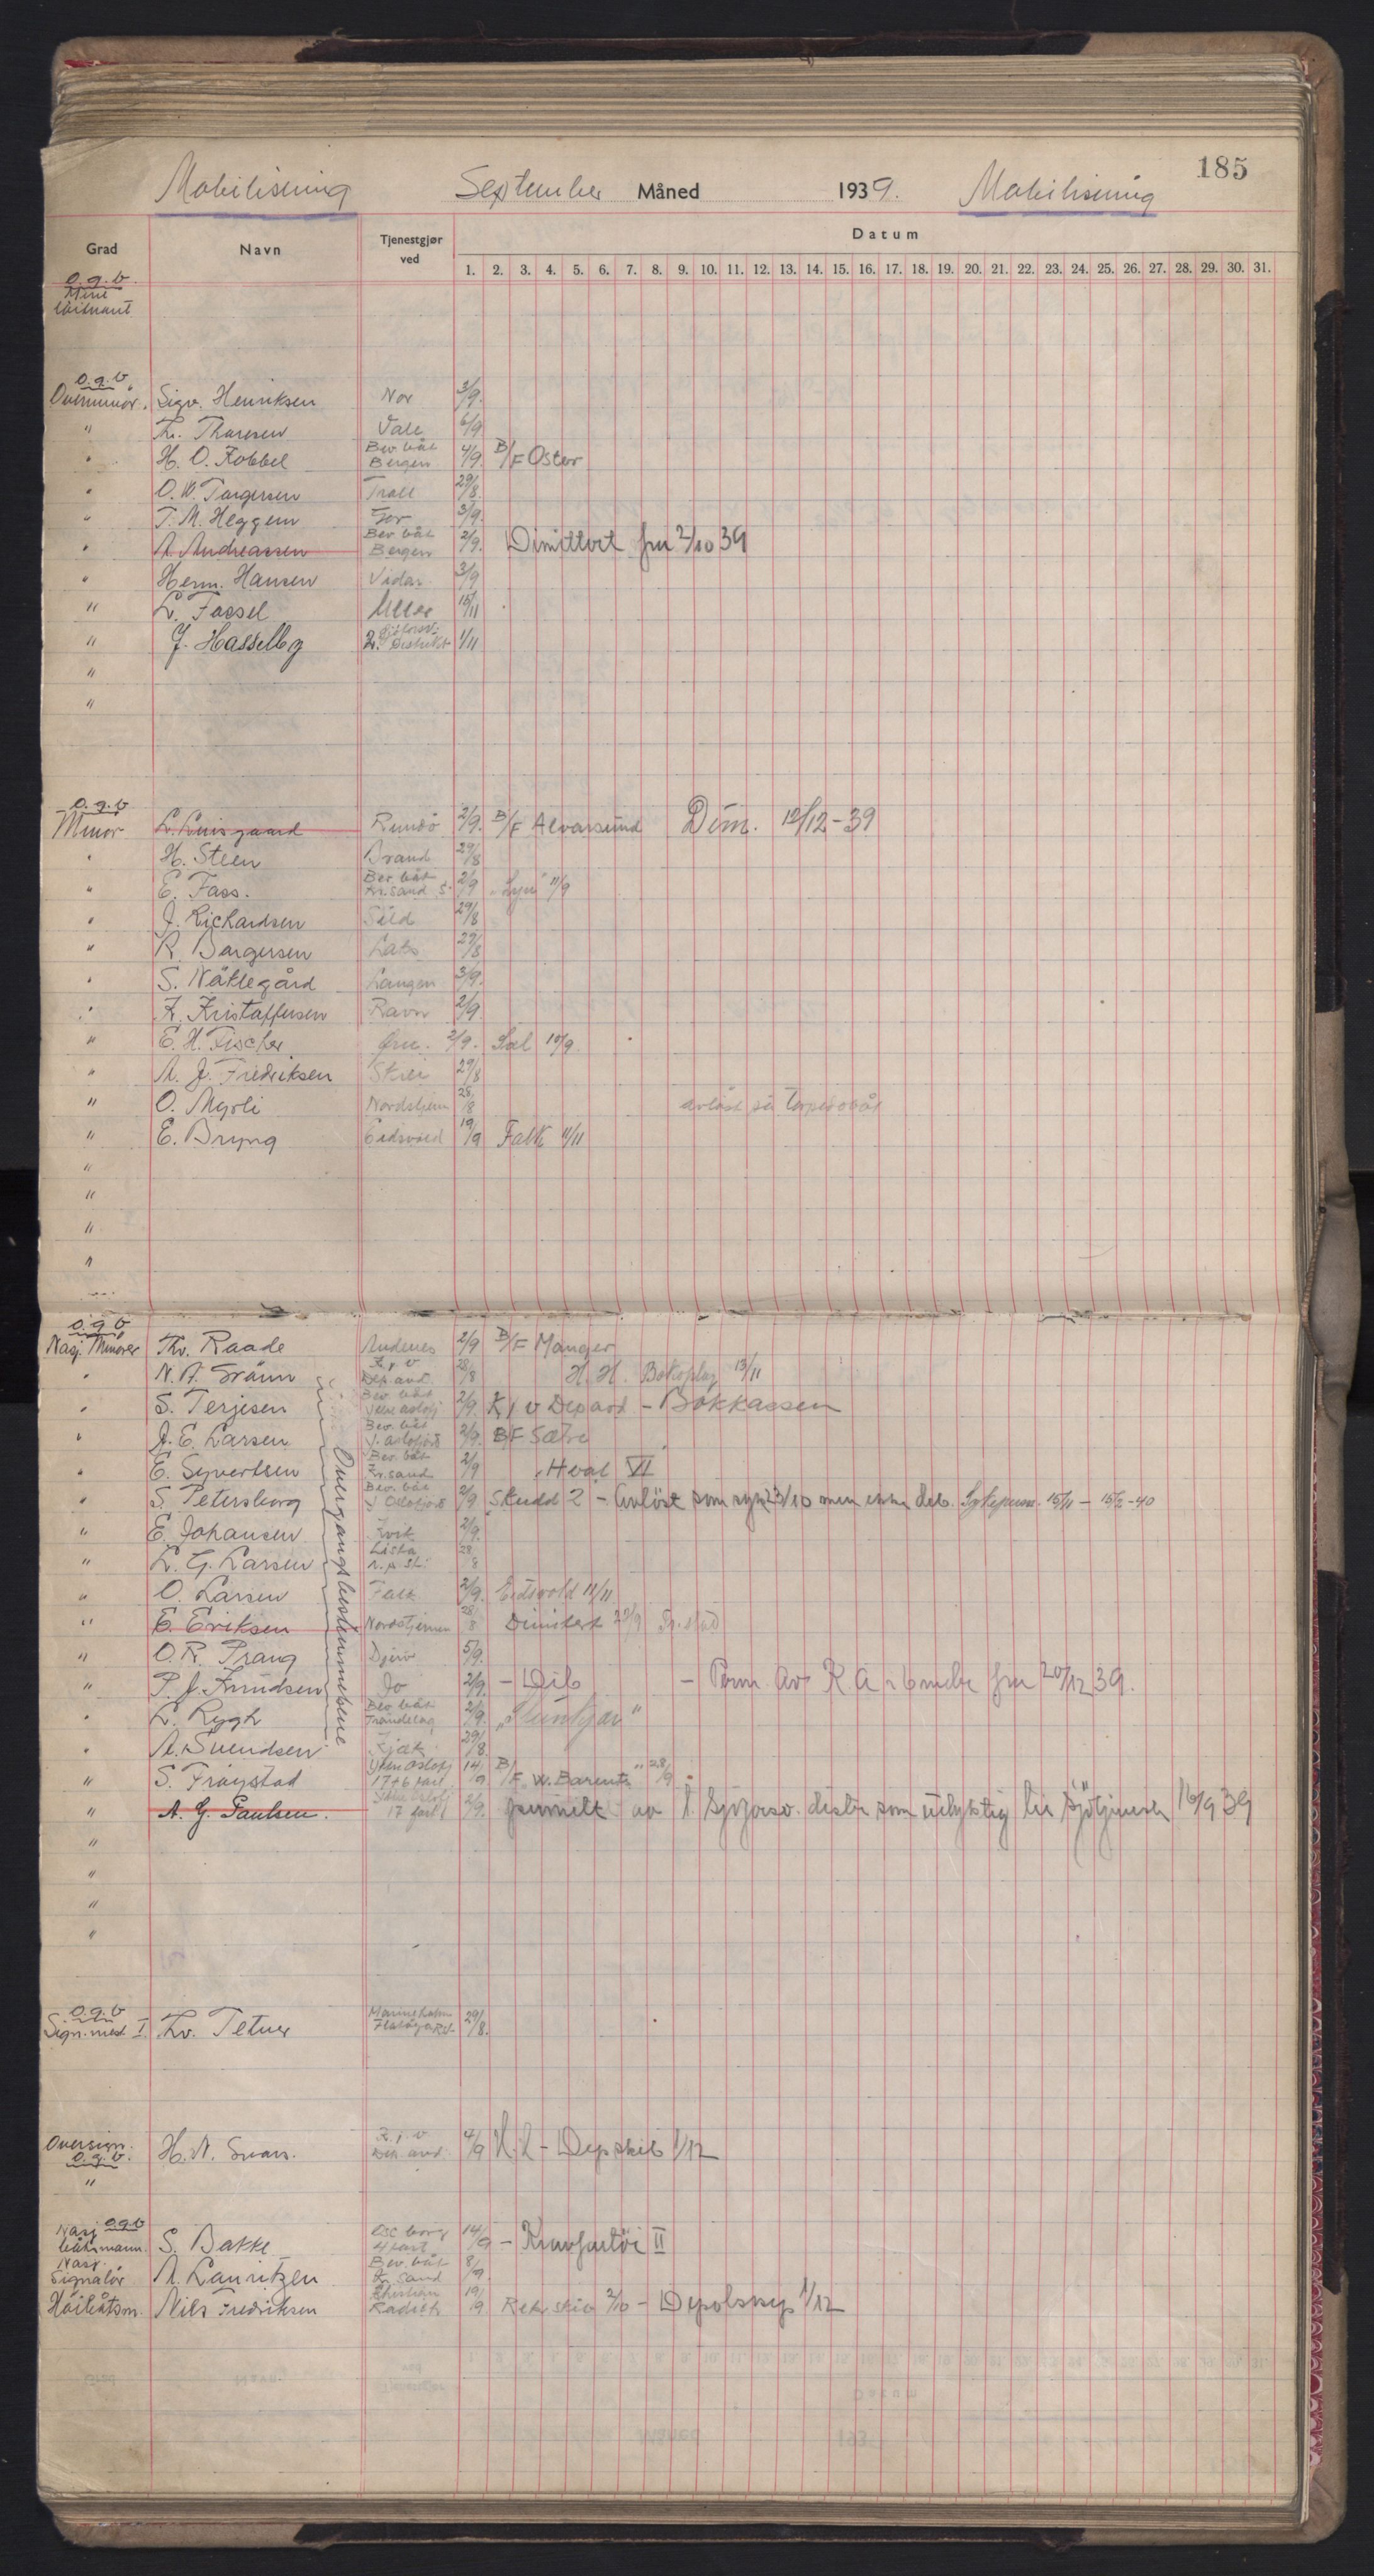 185
Mobilisering September Måned 1939. Mobilisering
Grad Navn Tjenestgjør ved Datum
1. 2. 3. 4. 5. 6. 7. 8. 9. 10. 11. 12. 13. 14. 15. 16. 17. 18. 19. 20. 21. 22. 23. 24. 25. 26. 27. 28. 29. 30. 31.
o.g.v.
Mine
løitnant
o.g.v.
Overminør. Sigv. Henriksen Nor 3/9.
" Th. Thoresen Vale 6/9
" H. O. Kobbel Bev. båt Bergen 4/9. B/F Oster
" O. W. Torgersen Troll 29/8.
" T. M. Heggem Gor 3/9.
" A. Andreassen Bev båt Bergen 2/9. Dimittert fra 2/10 39
" Herm. Hansen Vidar 3/9
" L. Fossel Uller 15/11
" J. Hasselby 2. Distrikt 1/11
"
"
o.g.v
Minør L. Luisgaard Rundö 2/9. B/F Alversund Dim. 12/12-39
" H. Steen Brand 29/8
" E. Foss. Bev. båt Kr.sand S. 2/9 "Lyn" 11/9
" J. Rickardsen Sild 29/8
" R. Borgersen Laks 29/8
" S. Nöklegård Laugen 3/9.
" K. Kristoffersen Ravn 2/9.
" E. H. Fischer Ørn. 2/9. Sæl 10/9.
" A. J. Fredriksen Skrei 29/8
" O. Myrli Nordstjern 28/8 avløst på Torpedobåt
" E. Bryng Eidsvold 19/9 Falk 11/11
"
"
"
"
o.g.v
Nasj. Minører Th. Raade Andenes 2/9 B/F Manger
" N. A. Grönn K.j.v Dep. avd. 28/8 H. H. 13/11
" S. Terjesen Bev. båt Ytre oslofj 2/9. K j v Dep avd - Bokkassen
" J. E. Larsen Bev. båt Y. oslofjord 2/9. B/F Sætre
" E. Syvertsen Bev. båt Kr.sand 2/9 Hval VI
" S. Petersborg Bev. båt Y. Oslofjord 2/9 Skudd 2 - Avløst som syk 23/10 men ikke deb. Sykeperm. 15/11 - 15/2-40
" E. Johansen Kvik 2/9.
" L. G. Larsen Lista r.p. st. 28/8
" O. Larsen Falk 2/9. Eidsvold 11/11
" E. Eriksen Nordstjernen 28/8 Dimitert 27/9 Fr.stad
" O. R. Prang Djerv 5/9.
" P. J. Knudsen Jo 2/9. - Dib - Perm. av K. A i 6 mdr fra 20/12 39.
" L. Rygh Bev. båt Tröndelag 2/9.
" A. Svendsen Kjæk 29/8.
" S. Fröystad Ytre Oslofj 14/9 B/F "W. Barents" 28/9
" A. G. Paulsen. Ytre Oslofj 2/9. av 1. Sjøforsv. distr som udyktig til sjøtjeneste 16/9 39
Overgangsbestemmelsene
"
"
"
"
o.g.v
Sign.mest. I Kv. Tetner 29/8.
Oversign.
o.g.v. H. N. Svars. K.j.v Dep. avd. 4/9 H. L - Depskib 1/12
"
Nasj. o.g.v
båtsmann. S. Bakke Osc. borg 4 fort 14/9 - Kranfartöi II
Nasj.
Signalör A. Lauritzen Bev. båt Kr. sand 8/9.
Höibåtsm. Nils Fredriksen Christian Radich 19/9 Rekr skib 2/10 - 1/12